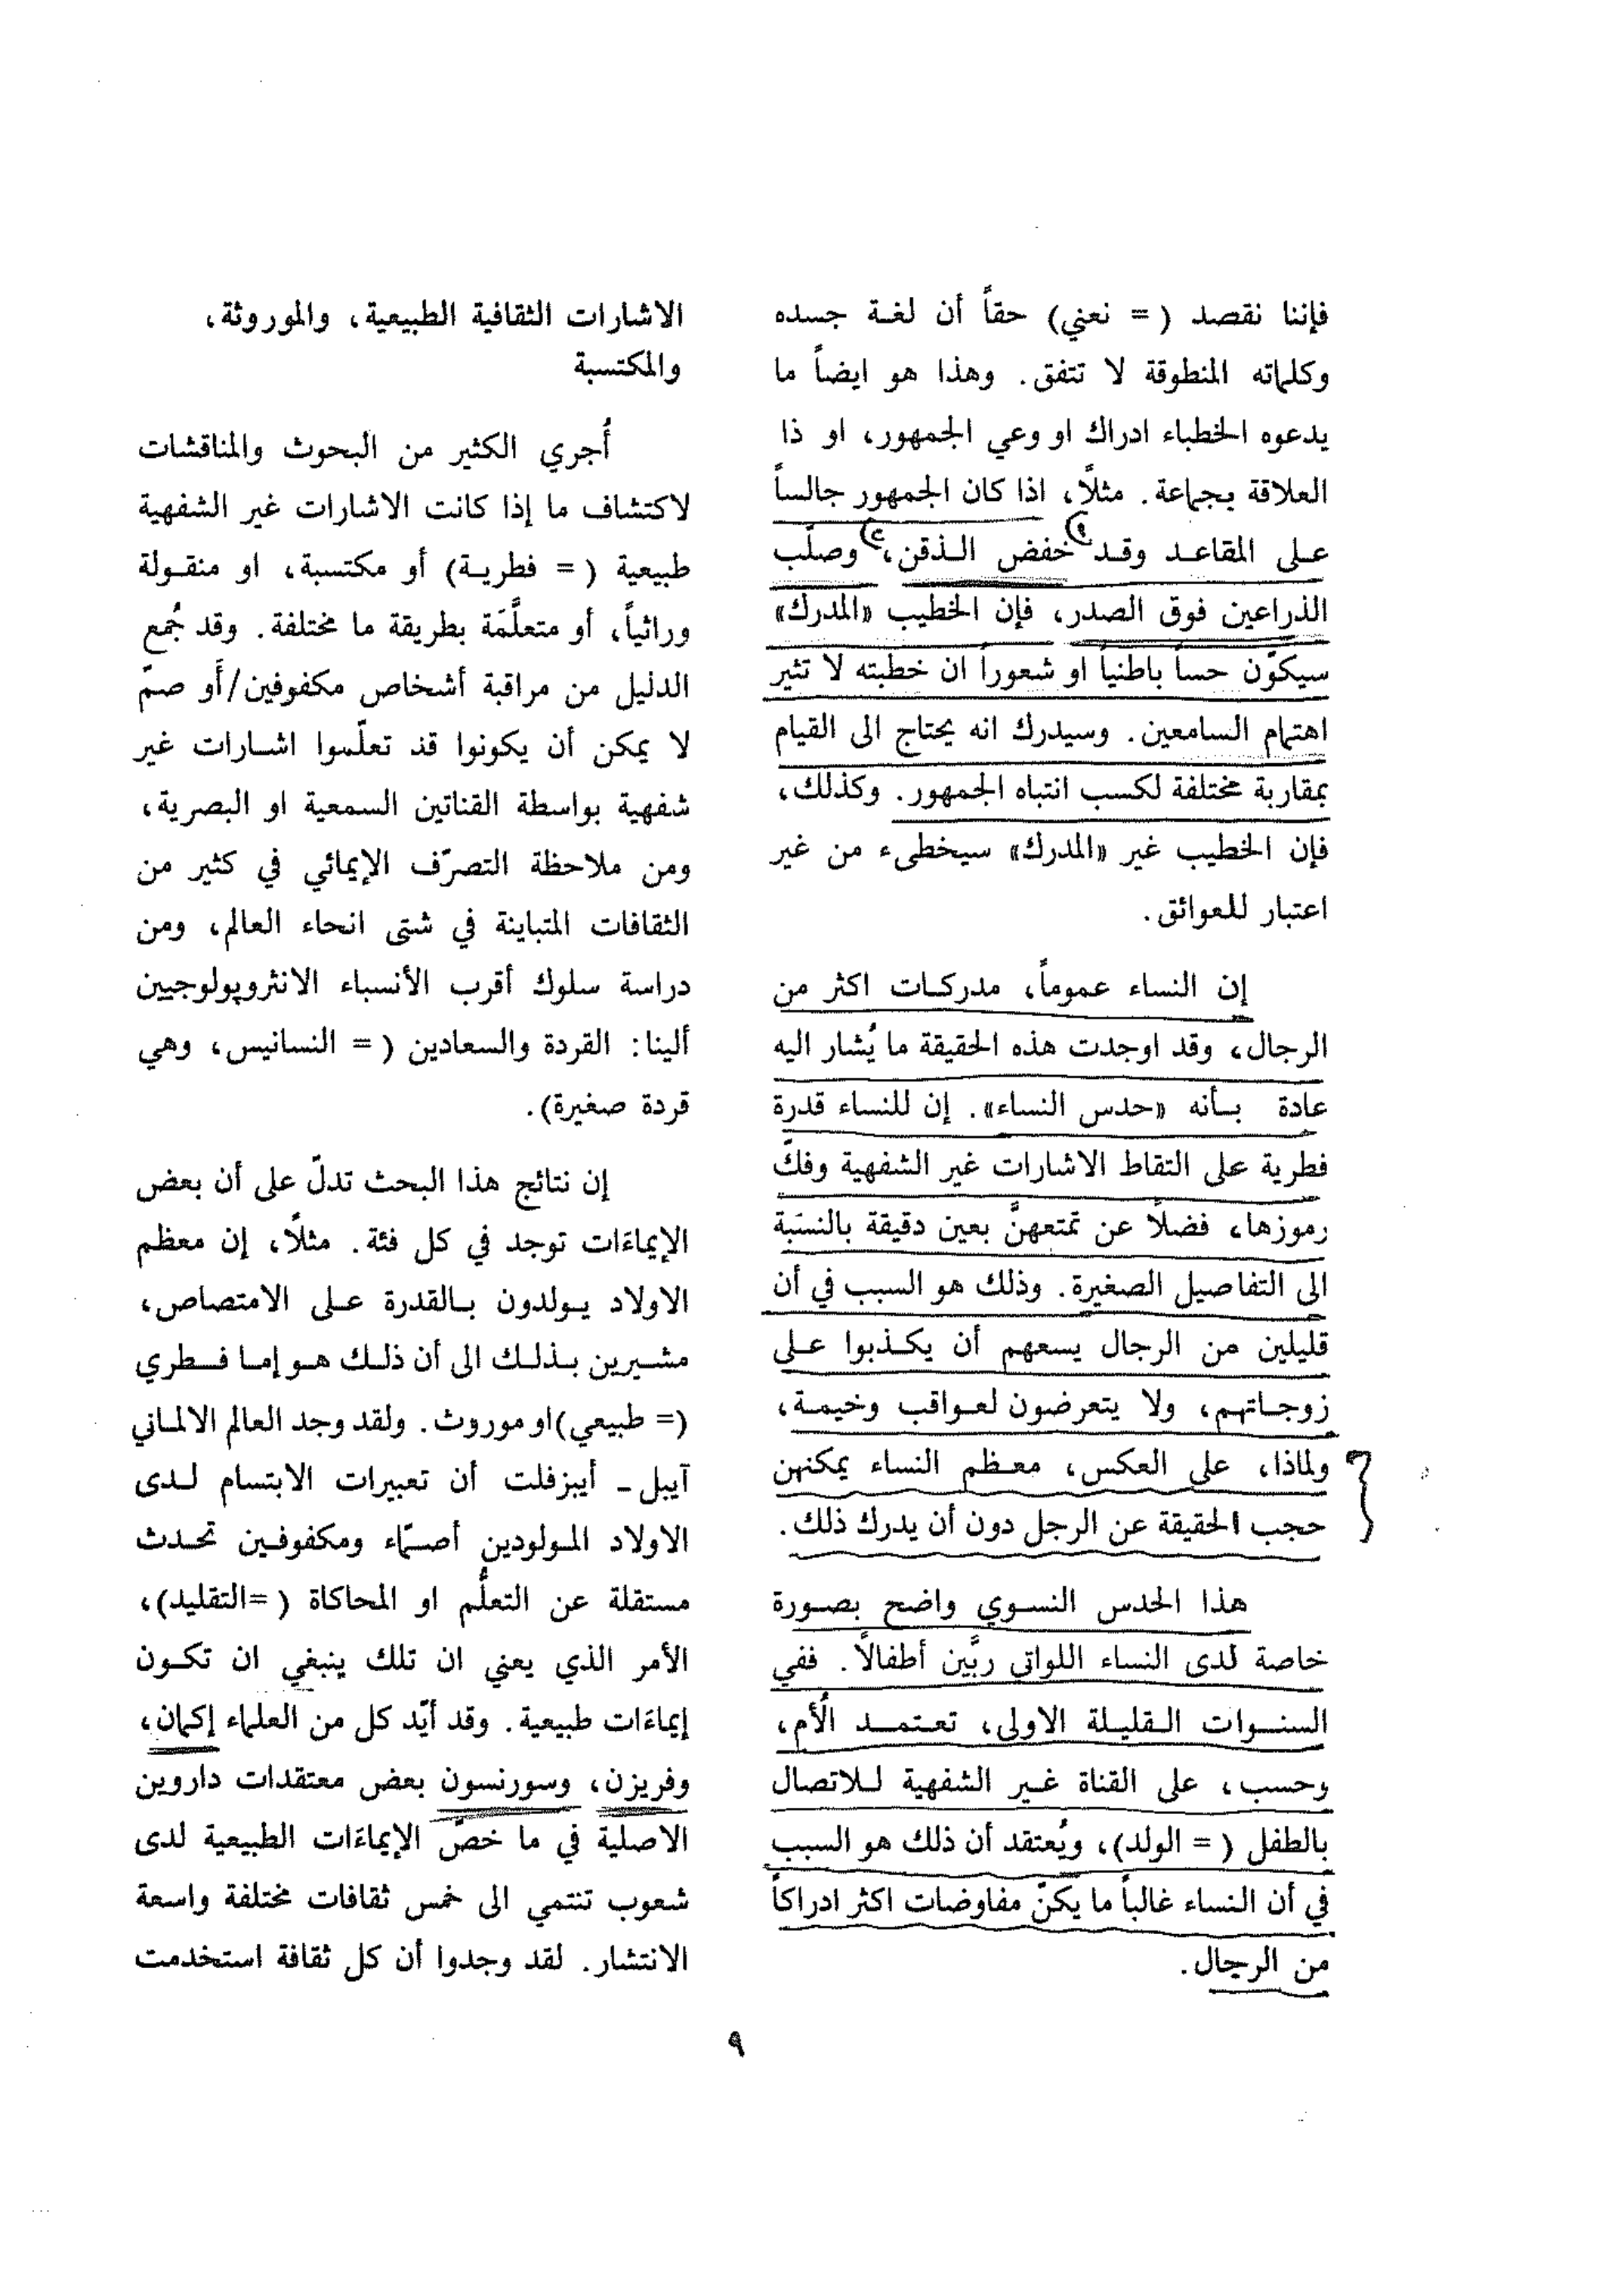 فإننا نقصد ( = نعني) حقاً أن لغة جسده
وكلماته المنطوقة لا تتفق. وهذا هو ايضاً ما
يدعوه الخطباء ادراك او وعي الجمهور، او ذا
العلاقة بجماعة. مثلاً، اذا كان الجمهور جالساً
على المقاعد وقد خفض الذقن، وصلّب
الذراعين فوق الصدر، فإن الخطيب «المدرك»
سيكوّن حساً باطنياً او شعوراً ان خطبته لا تثير
اهتمام السامعين. وسيدرك انه يحتاج الى القيام
بمقاربة مختلفة لكسب انتباه الجمهور. وكذلك،
فإن الخطيب غير «المدرك» سيخطىء من غير
اعتبار للعوائق.
إن النساء عموماً، مدركات اكثر من
الرجال، وقد اوجدت هذه الحقيقة ما يُشار اليه
عادة بأنه «حدس النساء». إن للنساء قدرة
فطرية على التقاط الاشارات غير الشفهية وفكّ
رموزها، فضلاً عن تمتعهنّ بعين دقيقة بالنسبة
الى التفاصيل الصغيرة. وذلك هو السبب في أن
قليلين من الرجال يسعهم أن يكذبوا على
زوجاتهم، ولا يتعرضون لعواقب وخيمة،
ولماذا، على العكس، معظم النساء يمكنهن
حجب الحقيقة عن الرجل دون أن يدرك ذلك.
هذا الحدس النسوي واضح بصورة
خاصة لدى النساء اللواتي ربَّين أطفالاً. ففي
السنوات القليلة الاولى، تعتمد الأم،
وحسب، على القناة غير الشفهية للاتصال
بالطفل ( = الولد)، ويُعتقد أن ذلك هو السبب
في أن النساء غالباً ما يكنّ مفاوضات اكثر ادراكاً
من الرجال.
الاشارات الثقافية الطبيعية، والموروثة،
والمكتسبة
أُجري الكثير من البحوث والمناقشات
لاكتشاف ما إذا كانت الاشارات غير الشفهية
طبيعية ( = فطرية) أو مكتسبة، او منقولة
وراثياً، أو متعلَّمَة بطريقة ما مختلفة. وقد جُمع
الدليل من مراقبة أشخاص مكفوفين/أو صمّ
لا يمكن أن يكونوا قد تعلّموا اشارات غير
شفهية بواسطة القناتين السمعية او البصرية،
ومن ملاحظة التصرّف الإيمائي في كثير من
الثقافات المتباينة في شتى انحاء العالم، ومن
دراسة سلوك أقرب الأنسباء الانثروپولوجيين
ألينا: القردة والسعادين ( = النسانيس، وهي
قردة صغيرة).
إن نتائج هذا البحث تدلّ على أن بعض
الإيماءَات توجد في كل فئة. مثلاً، إن معظم
الاولاد يولدون بالقدرة على الامتصاص،
مشيرين بذلك الى أن ذلك هو إما فطري
(= طبيعي)او موروث. ولقد وجد العالم الالماني
آيبل - أيبزفلت أن تعبيرات الابتسام لدى
الاولاد المولودين أصمّاء ومكفوفين تحدث
مستقلة عن التعلُّم او المحاكاة ( =التقليد)،
الأمر الذي يعني ان تلك ينبغي ان تكون
إيماءَات طبيعية. وقد أيّد كل من العلماء إكمان،
وفريزن، وسورنسون بعض معتقدات داروين
الاصلية في ما خصّ الإيماءَات الطبيعية لدى
شعوب تنتمي الى خمس ثقافات مختلفة واسعة
الانتشار. لقد وجدوا أن كل ثقافة استخدمت
٩